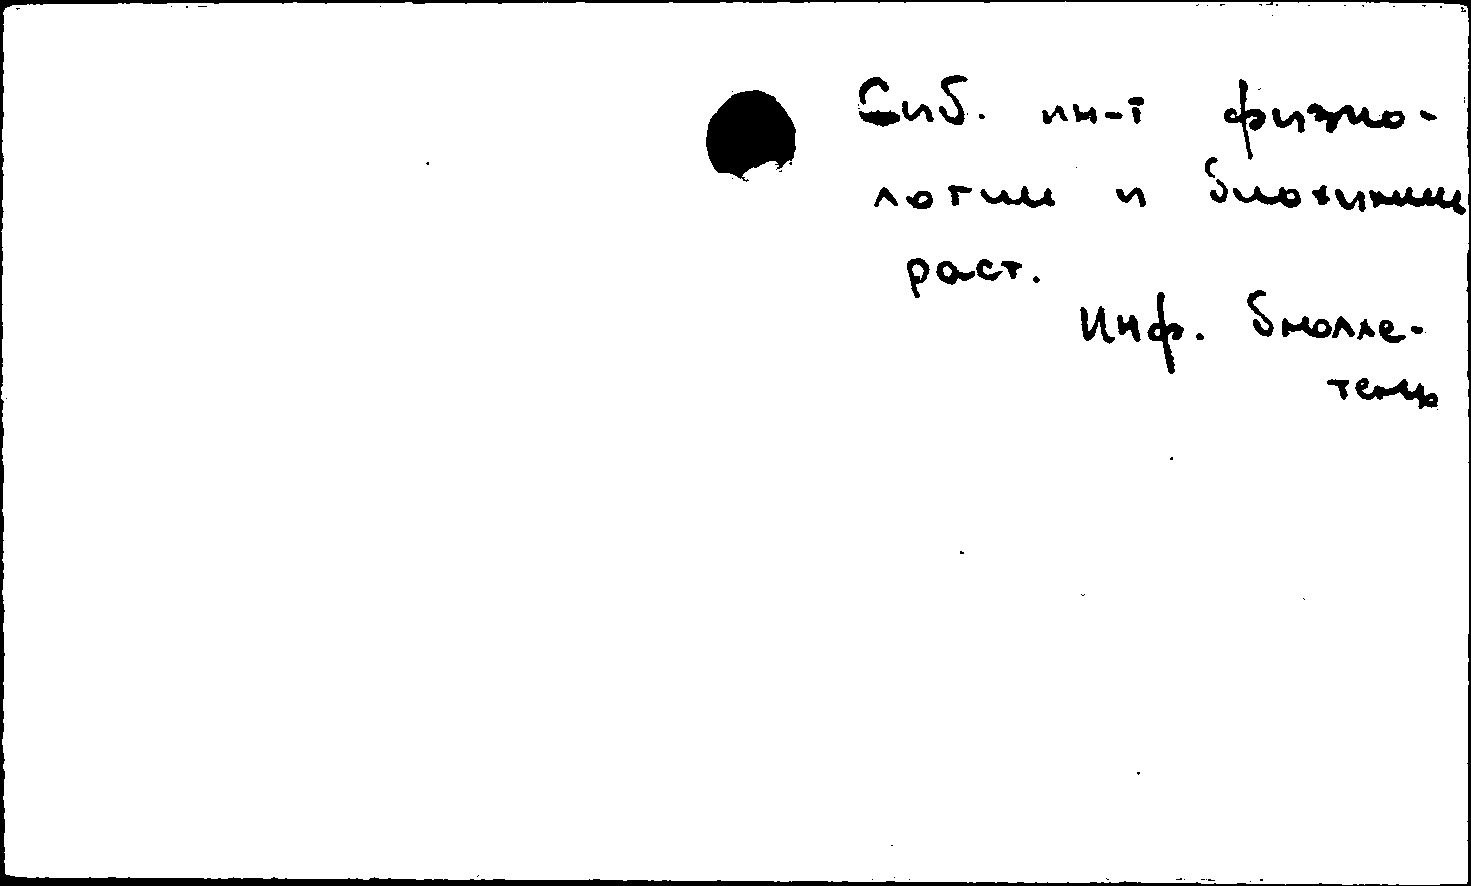 Сиб. ин-т физио-
логии и биохимии
раст.
Инф. бюлле-
тень